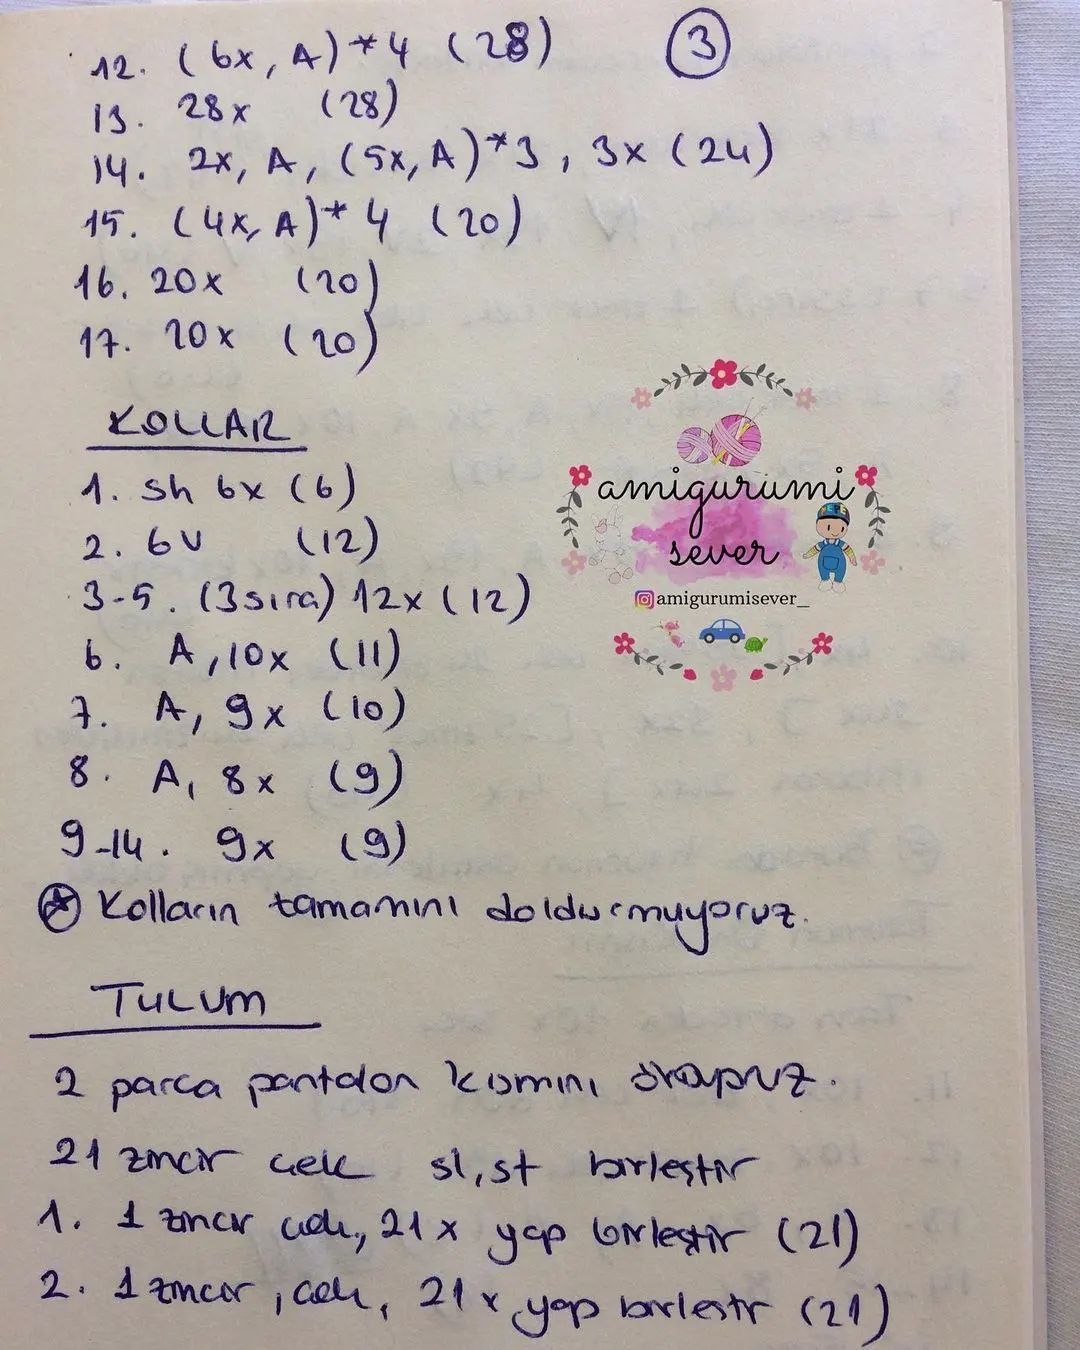 12. (6x, A)*4 (28)
3
13. 28x (28)
14. 2x, A, (5x, A)*3, 3x (24)
15. (4x, A)*4 (20)
16. 20x (20)
17. 20x (20)
KOLLAR
1. sh 6x (6)
2. 6V (12)
3-5. (3 sıra) 12x (12)
6. A, 10x (11)
7. A, 9x (10)
8. A, 8x (9)
9-14. 9x (9)
Kolların tamamını doldurmuyoruz.
TULUM
2 parca pantolon kısmını örüyoruz.
21 zincir cek sl, st birleştir
1. 1 zincir cek, 21x yap birleştir (21)
2. 1 zincir, cek, 21x yap birleştir (21)
amigurumi
sever
amigurumisever_